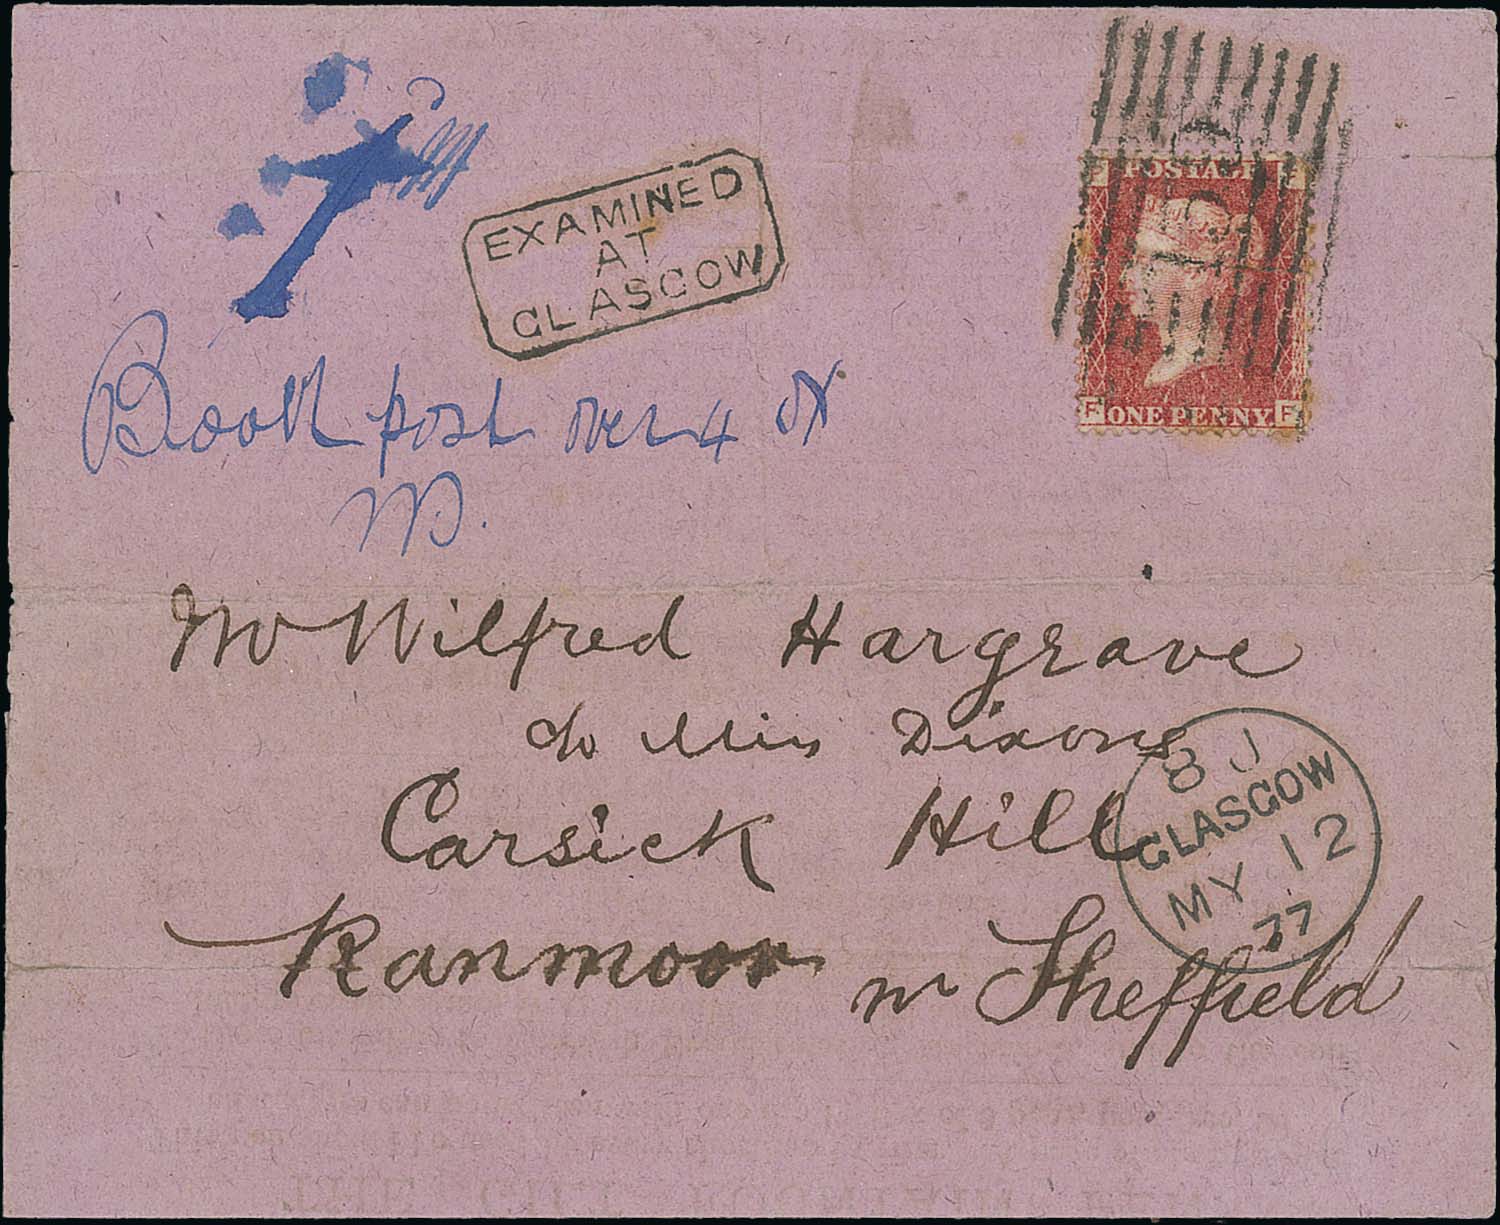 EXAMINED
AT
GLASGOW
POSTAGE
F F
ONE PENNY
Book post over 4 oz
Mr Wilfred Hargrave
c/o Miss Dixons
Carsick Hill
Ranmoor nr Sheffield
8 J
GLASGOW
MY 12
77